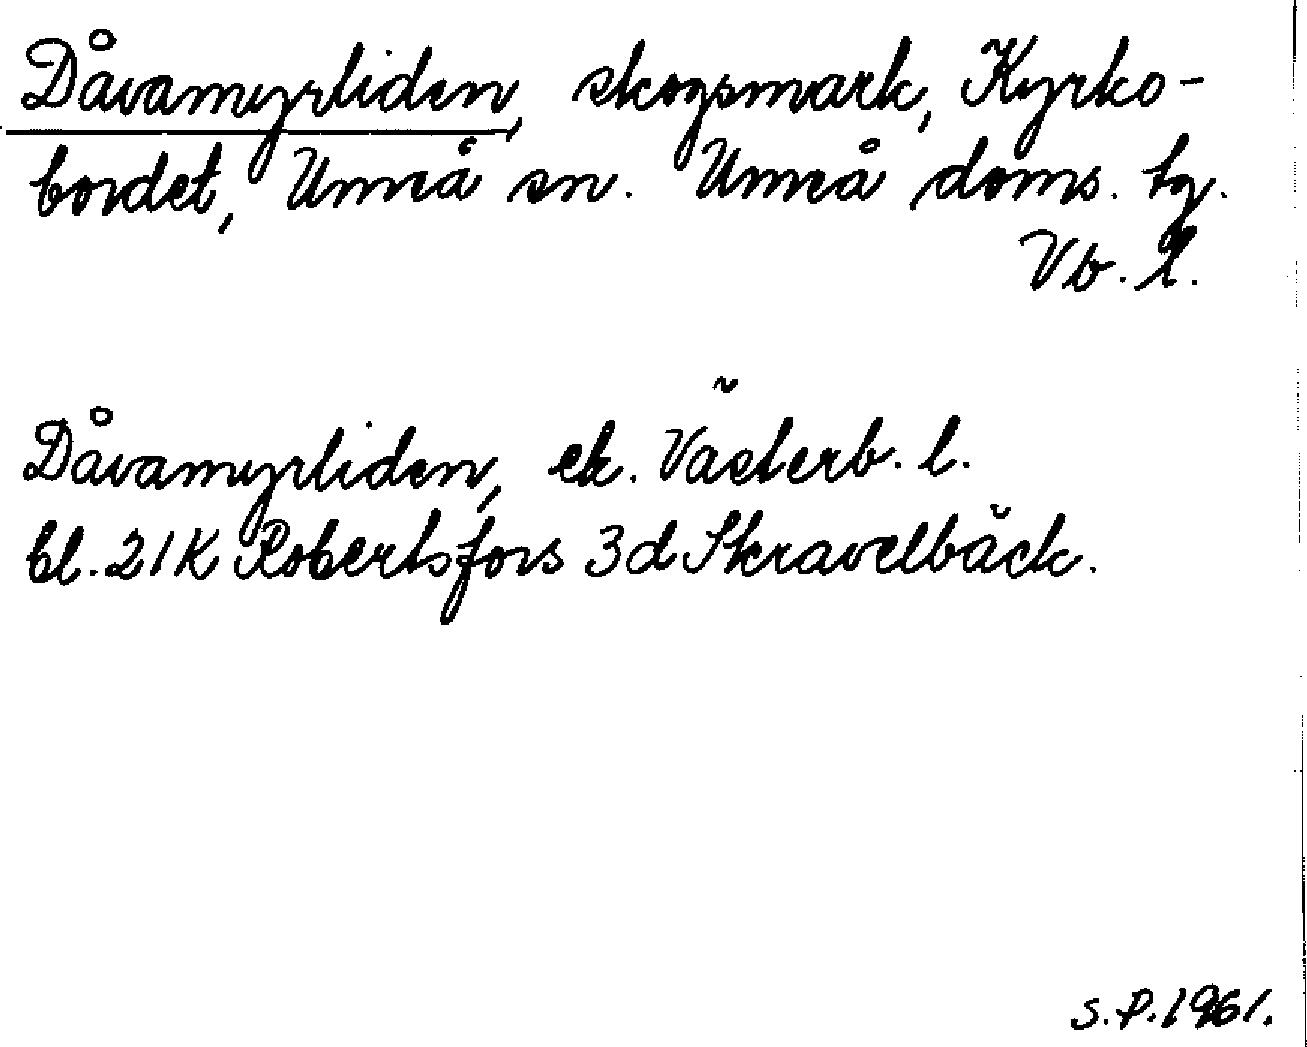 Dåvamyrliden, skogsmark, Kyrko-
bordet, Umeå sn. Umeå doms. tg.
Vb. l.
Dåvamyrliden, ek. Västerb. l.
bl. 21K Robertsfors 3d Skravelbäck.
S.P. 1961.